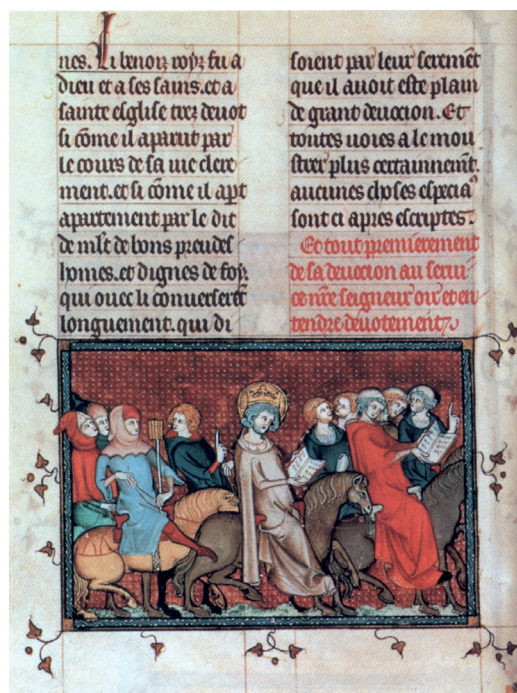 nes. Li benoiz roys fu a
dieu et a ses sains. et a
sainte esglise trez deuot
si cōme il aparut par
le cours de sa uie clere
ment. et si cōme il apt
apartement par le dit
de mlt de bons preudes
hommes. et dignes de foy.
qui ouec li conuerserēt
longuement. qui di
soient par leur seremēt
que il auoit este plain
de grant deuocion. Et
toutes uoies a le mou
strer plus certainnemēt.
aucunes choses especiaˡ
sont ci apres escriptes.
Et tout premierement
de sa deuocion au serui
ce nr̄e seigneur oir et en
tendre deuotement.